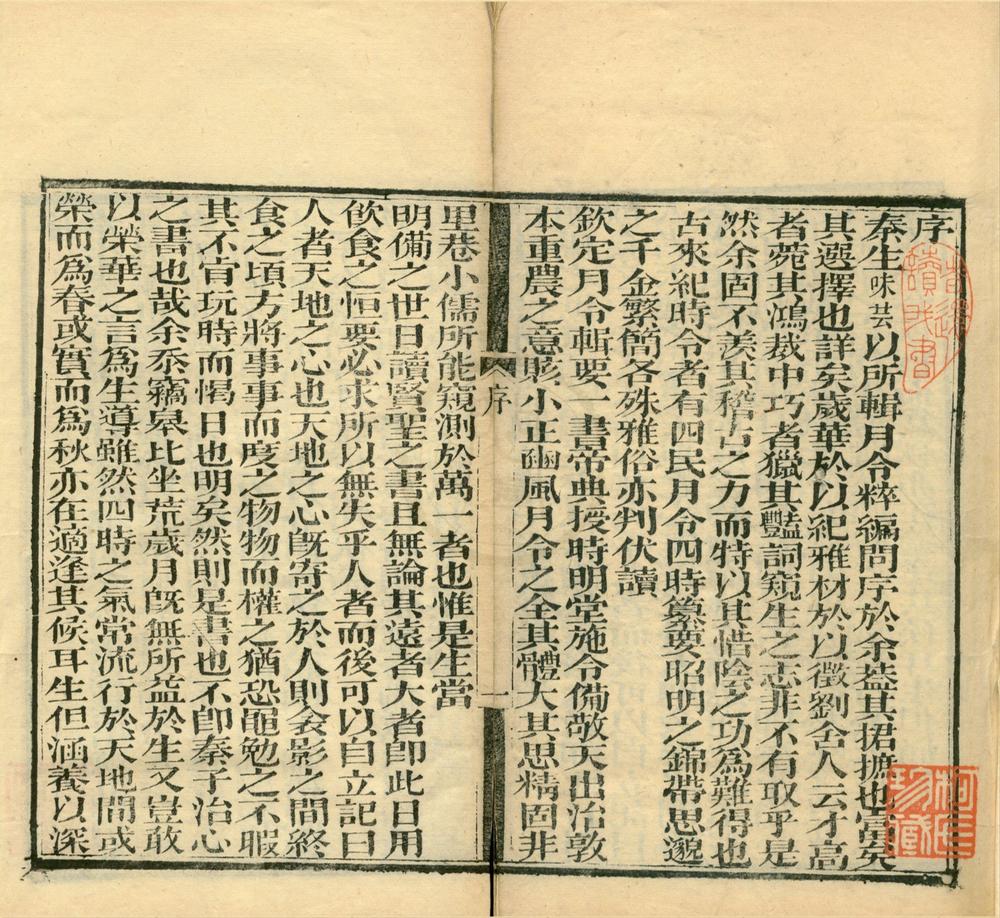 序
秦生味芸以所輯月令粹編問序於余葢其捃摭也富矣
其選擇也詳矣歲華於以紀雅材於以徵劉舍人云才高
者菀其鴻裁中巧者獵其豔詞窺生之志非不有取乎是
然余固不羨其稽古之力而特以其惜陰之功爲難得也
古來紀時令者有四民月令四時纂要昭明之錦帶思邈
之千金繁簡各殊雅俗亦判伏讀
欽定月令輯要一書帝典授時明堂施令備敬天出治敦
本重農之意賅小正豳風月令之全其體大其思精固非
序
一
里巷小儒所能窺測於萬一者也惟是生當
明備之世日讀賢聖之書且無論其遠者大者卽此日用
飮食之恒要必求所以無失乎人者而後可以自立記曰
人者天地之心也天地之心旣寄之於人則衾影之間終
食之頃方將事事而度之物物而權之猶恐黽勉之不暇
其不官玩時而愒日也明矣然則是書也不卽秦子治心
之書也哉余忝竊皋比坐荒歲月旣無所益於生又豈敢
以榮華之言爲生導雖然四時之氣常流行於天地間或
榮而爲春或實而爲秋亦在適逢其候耳生但涵養以深
柯氏
珍藏